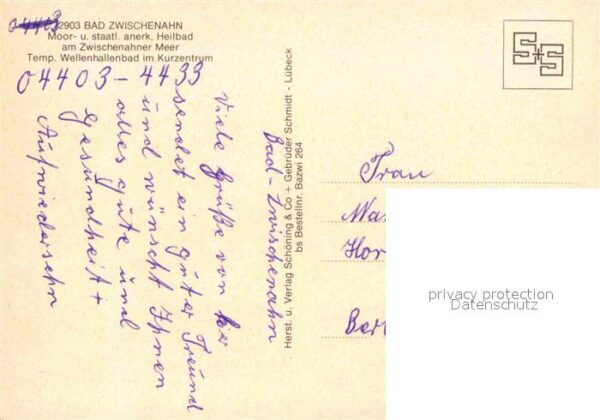 2903 BAD ZWISCHENAHN
Moor- u. staatl. anerk. Heilbad
am Zwischenahner Meer
Temp. Wellenhallenbad im Kurzentrum
04403-4433
Bad-Zwischenahn
Viele Grüße von hier
sendet ein guter Freund
und wünscht Ihnen
alles gute und
Gesundheit +
Aufwiedersehn
Herst. u. Verlag Schöning & Co + Gebrüder Schmidt - Lübeck
bs Bestellnr. Bazwi 264
S+S
Frau
privacy protection
Datenschutz